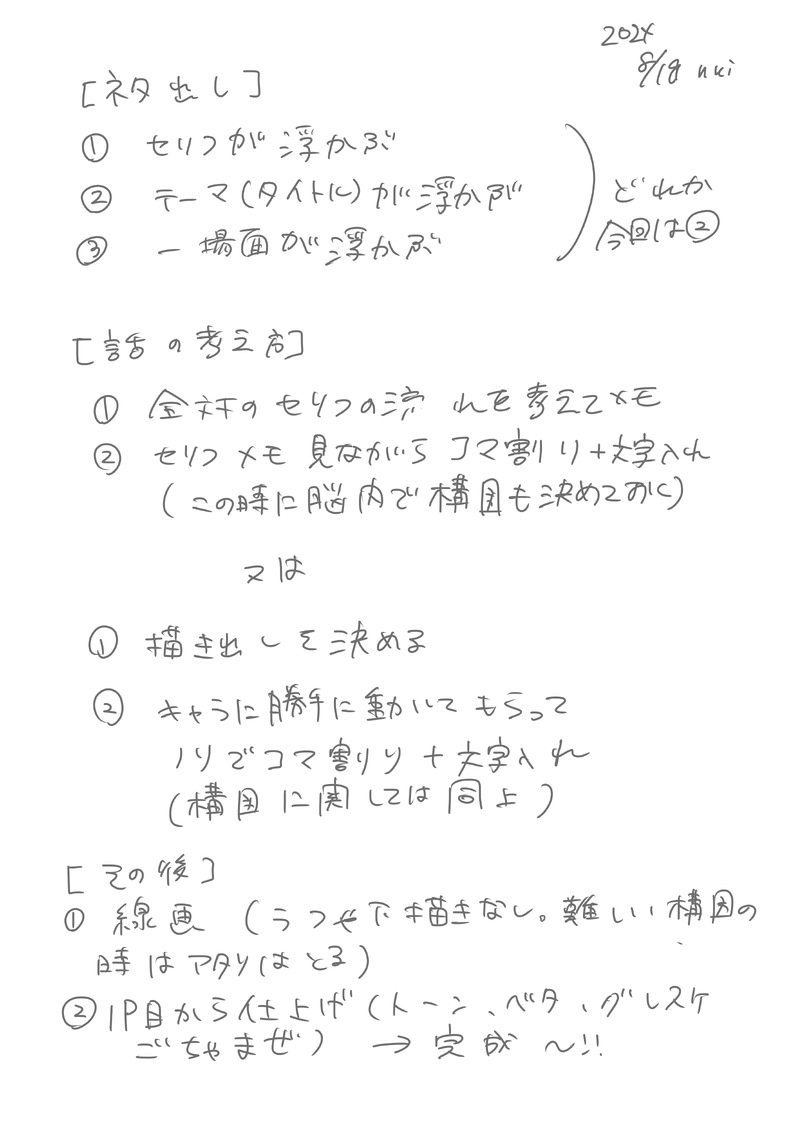 2024
8/18 nki
[ネタ出し]
① セリフが浮かぶ
② テーマ(タイトル)が浮かぶ
③ 一場面が浮かぶ
どれか
今回は②
[話の考え方]
① 全体のセリフの流れを考えてメモ
② セリフメモ見ながらコマ割り+文字入れ
(この時に脳内で構図も決めておく)
又は
① 描き出しを決める
② キャラに勝手に動いてもらって
ノリでコマ割り+文字入れ
(構図に関しては同上)
[その後]
① 線画 (うつや下描きなし。難しい構図の
時はアタリはとる)
② 1P目から仕上げ(トーン、ベタ、グレスケ
ごちゃまぜ) → 完成〜!!